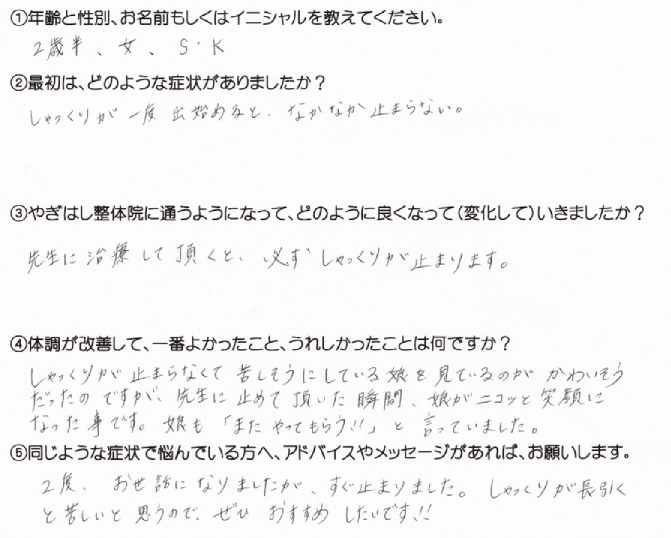 ①年齢と性別、お名前もしくはイニシャルを教えてください。
2歳半、女、S・K
②最初は、どのような症状がありましたか？
しゃっくりが一度出始めると、なかなか止まらない。
③やぎはし整体院に通うようになって、どのように良くなって(変化して)いきましたか？
先生に治療して頂くと、必ずしゃっくりが止まります。
④体調が改善して、一番よかったこと、うれしかったことは何ですか？
しゃっくりが止まらなくて苦しそうにしている娘を見ているのがかわいそう
だったのですが、先生に止めて頂いた瞬間、娘がニコッと笑顔に
なった事です。娘も「またやってもらう!!」と言っていました。
⑤同じような症状で悩んでいる方へ、アドバイスやメッセージがあれば、お願いします。
2度、お世話になりましたが、すぐ止まりました。しゃっくりが長引く
と苦しいと思うので、ぜひおすすめしたいです!!